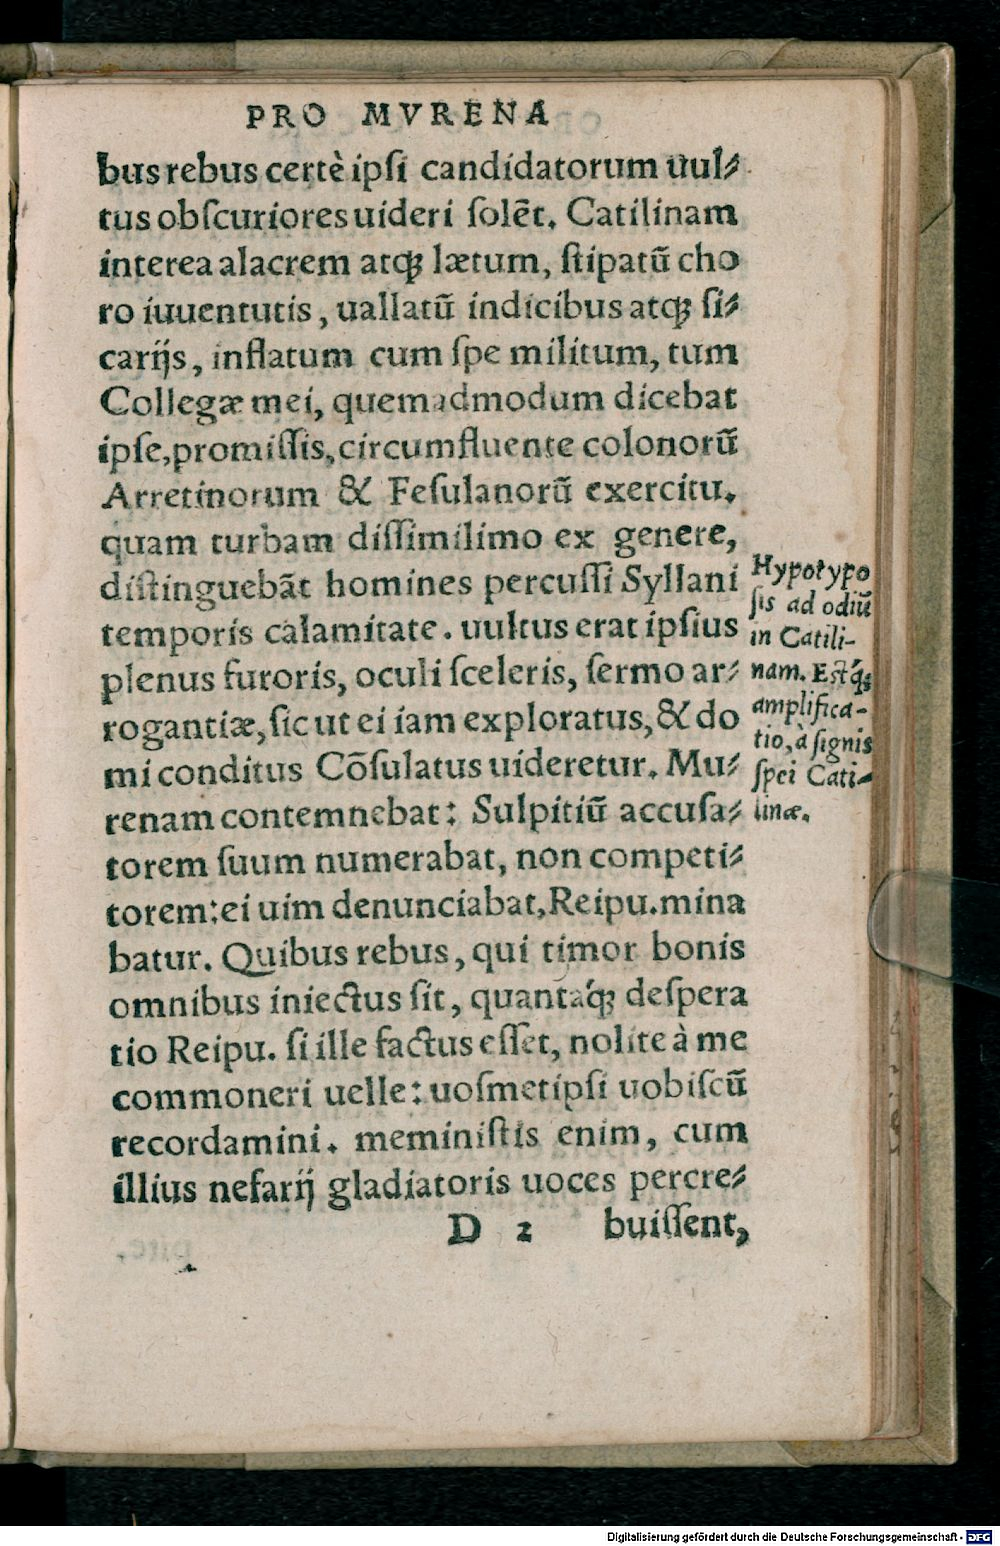 PRO MVRENA
bus rebus certè ipsi candidatorum uul⸗
tus obscuriores uideri solẽt. Catilinam
interea alacrem atq; lætum, stipatũ cho
ro iuuentutis, uallatũ indicibus atq; si⸗
carijs, inflatum cum spe militum, tum
Collegæ mei, quemadmodum dicebat
ipse, promissis, circumfluente colonorũ
Arretinorum & Fesulanorũ exercitu.
quam turbam dissimilimo ex genere,
distinguebãt homines percussi Syllani
temporis calamitate. uultus erat ipsius
plenus furoris, oculi sceleris, sermo ar⸗
rogantiæ, sic ut ei iam exploratus, & do
mi conditus Cõsulatus uideretur. Mu⸗
renam contemnebat: Sulpitiũ accusa⸗
torem suum numerabat, non competi⸗
torem: ei uim denunciabat, Reipu. mina
batur. Quibus rebus, qui timor bonis
omnibus iniectus sit, quantáq; despera
tio Reipu. si ille factus esset, nolite à me
commoneri uelle: uosmetipsi uobiscũ
recordamini. meministis enim, cum
illius nefarij gladiatoris uoces percre⸗
D 2 buissent,
Hypotypo
sis ad odiũ
in Catili-
nam. Estq́;
amplifica-
tio, à signis
spei Cati-
linæ.
Digitalisierung gefördert durch die Deutsche Forschungsgemeinschaft - DFG